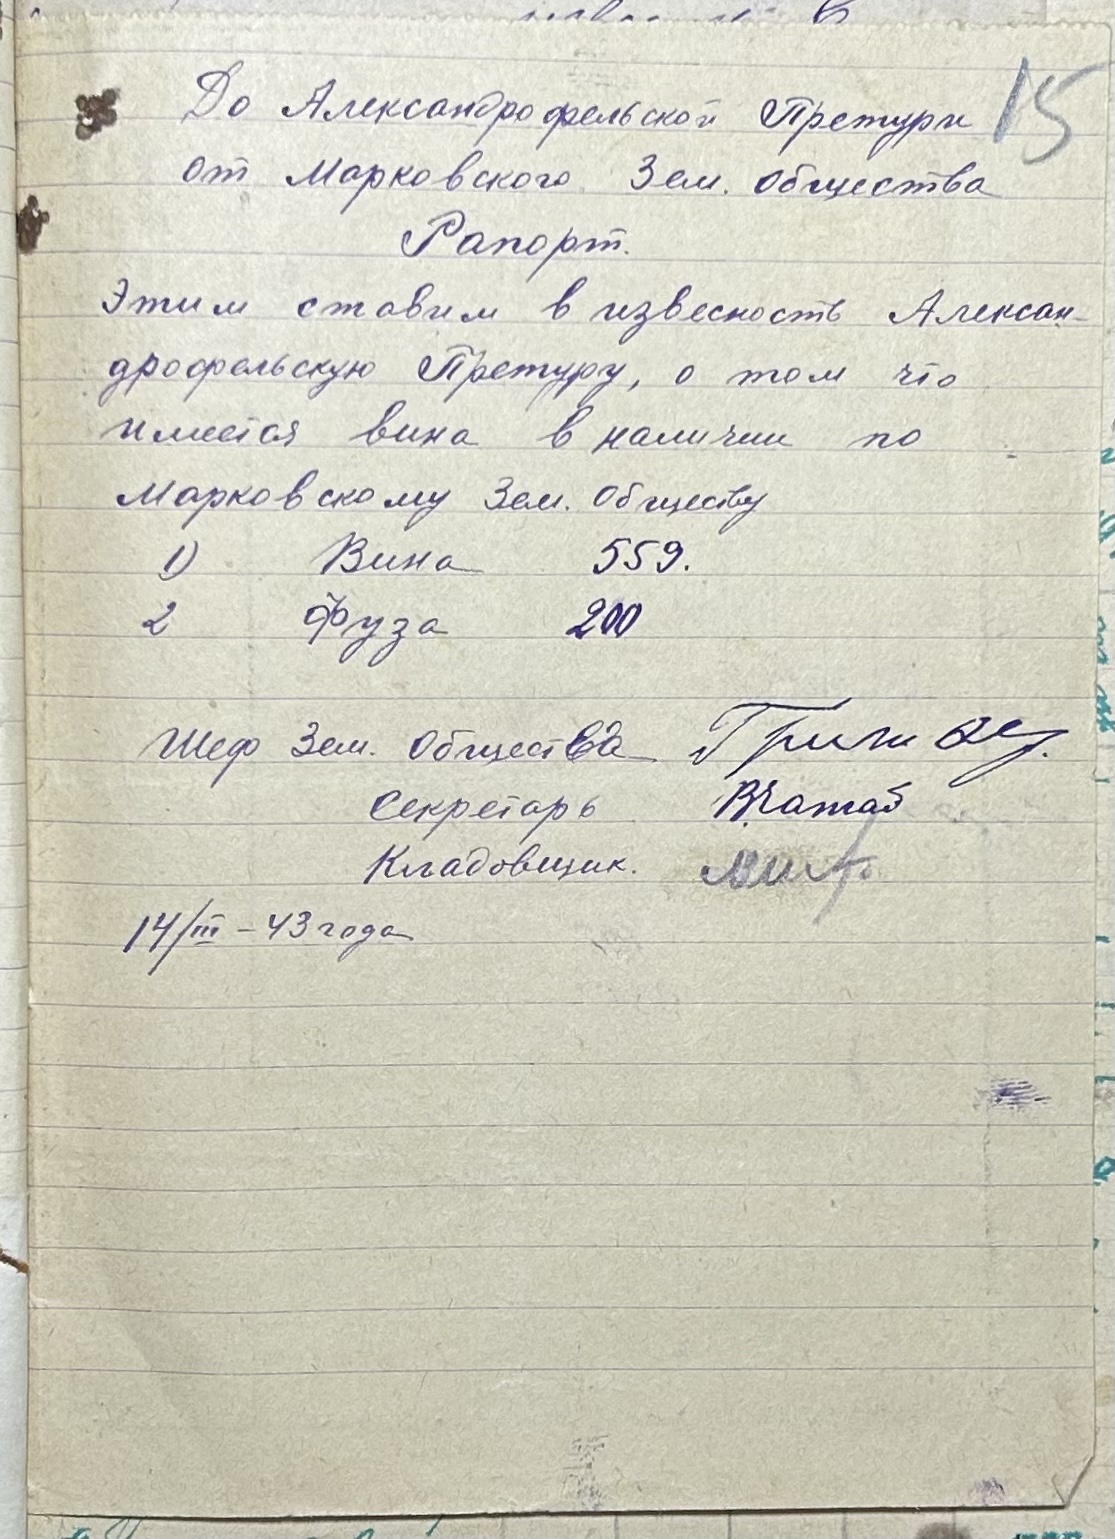 15
До Александрофельской Претури
от Марковского Зем. Общества
Рапорт.
Этим ставим в извесность Алексан-
дрофельскую Претуру, о том что
имеется вина в наличии по
Марковскому Зем. Обществу
1) Вина 559.
2 Фуза 200
Шеф Зем. Общества
Секретарь
Кладовщик.
14/III – 43 года